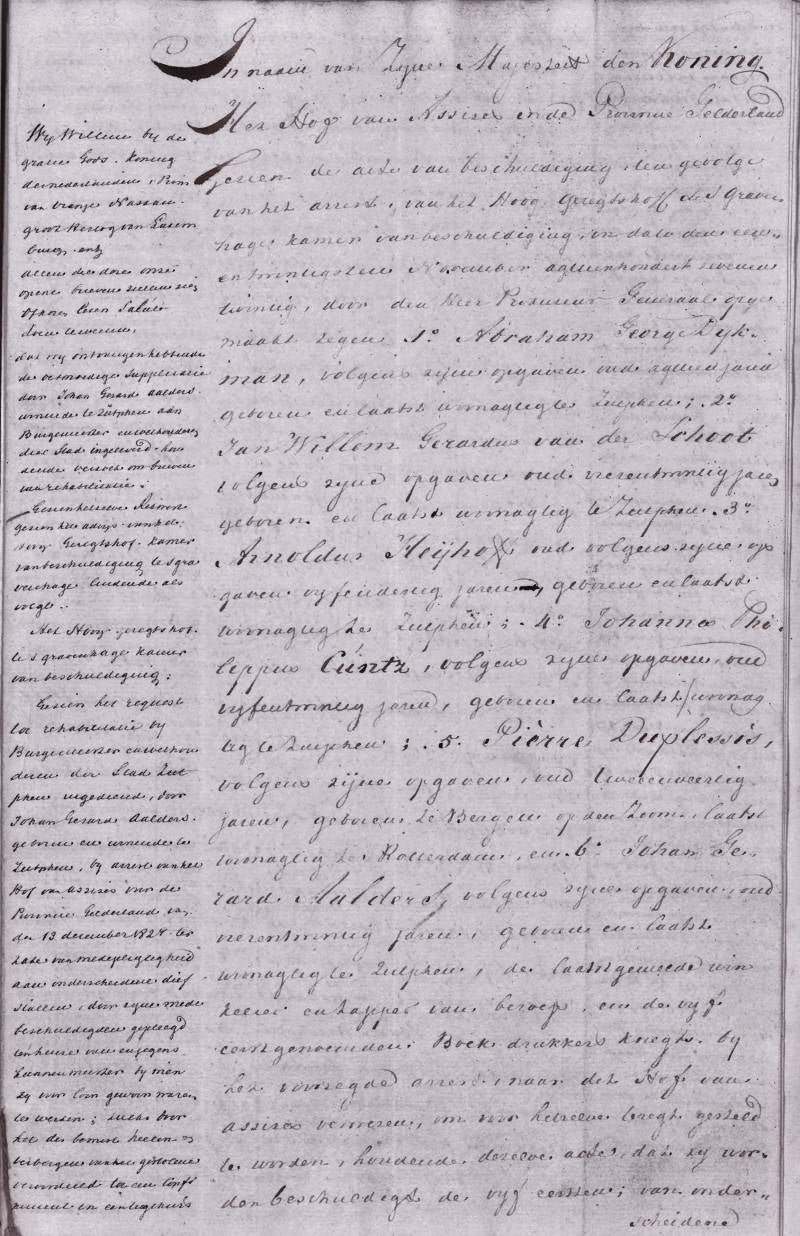 In naam van Zyne Majesteit den Koning.
Het Hof van Assises in de Provincie Gelderland
gezien de acte van beschuldiging, ten gevolge
van het arrest, van het Hoog Geregtshoff te s'Graven
hage kamer van beschuldiging, in dato den een
en twintigsten November agtienhondert zeven en
twintig, door den Heer Procureur Generaal opge
maakt tegen 1o. Abraham George Dyk-
man, volgens zyne opgaven oud agtien jaren
geboren en laatst woonagtig te Zutphen; 2o.
Jan Willem Gerardus van der Schoot
volgens zyne opgaven oud vierentwintig jaren
geboren en laatst woonagtig te Zutphen. 3o.
Arnoldus Heijhoff oud volgens zyne op
gaven vyfendertig jaren, geboren en laatst
woonagtig te Zutphen; 4o. Johannes Phi-
lippus Cüntz, volgens zyne opgaven, oud
vyfentwintig jaren, geboren en laatst woonag-
tig te Zutphen; 5. Piérre Duplessis,
volgens zyne opgaven, oud tweeenveertig
jaren, geboren te Bergen op den Zoom, laatst
woonagtig te Rotterdam, en 6o. Johan Ge-
rard Aalders, volgens zyne opgaven, oud
vierentwintig jaren, geboren en laatst
woonagtig te Zutphen, de laatstgemelde win
kelier en tapper van beroep, en de vyf
eerstgenoemden Boek drukkers knegts. by
het voorzegde arrest, naar dit Hof van
assises verwezen, om voor hetzelve teregt gesteld
te worden, houdende dezelve acte, dat zy wor-
den beschuldigt de vyf eersten; van onder-
scheidene
Wy Willem by de
gratie Gods. Koning
der nederlanden, Prins
van Oranje Nassau.
groot Hertog van Luxem
burg. enz
allen die deze onze
opene brieven zullen zien
of hooren lezen Salut
doen te weten,
dat wy ontvangen hebbende
de ootmoedige Supplicatie
door Johan Gerard Aalders.
wonende te Zutphen aan
Burgemeester en wethouderen
dier Stad ingeleverd. hou
dende verzoek om brieven
van rehabilitatie.
gezien het advys van het
Hoog Geregtshof. kamer
van beschuldiging te s'gra
venhage luidende als
volgt.
Het Hoog geregtshof
te s'gravenhage kamer
van beschuldiging;
Gezien het request
tot rehabilitatie by
Burgemeester en wethou
deren der Stad Zut
phen ingediend, door
Johan Gerard Aalders.
geboren en wonende te
Zutphen, by arrest van het
Hof van assises voor de
Provincie Gelderland van
den 13 december 1827 ter
zake van medepligtigheid
aan onderscheidene dief
stallen, door zyne mede
beschuldigden gepleegd
ten huize van en jegens
hunnen meester by wien
zy voor loon gewoon waren
te werken; zulks door
het des bewust heelen en
verbergen van het gestolene
veroordeeld tot een confi
nement in een tugthuis